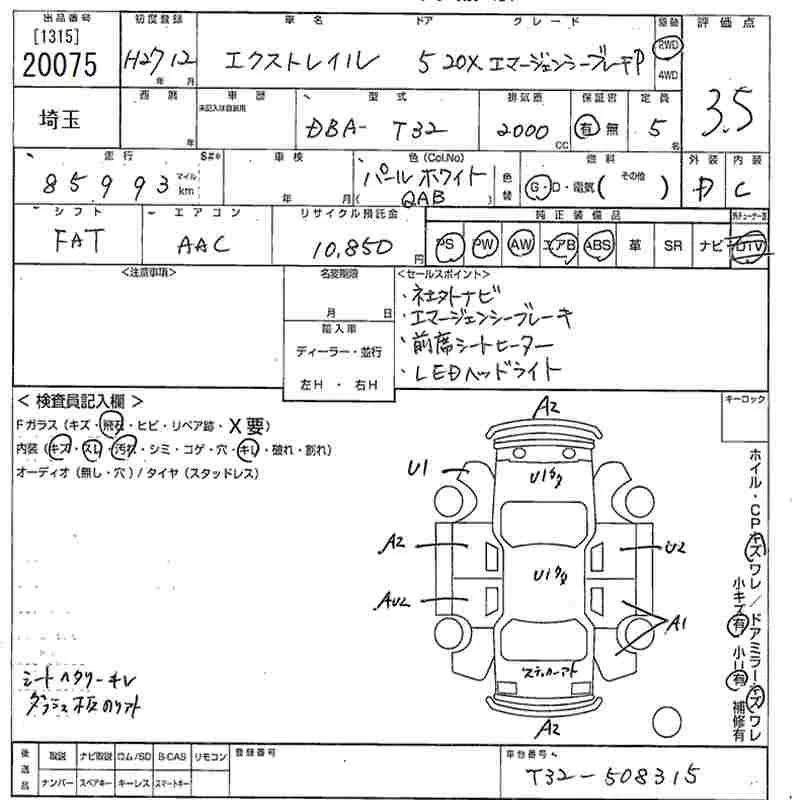 出品番号 初度登録 車名 ドア グレード 駆動 評価点
[1315] 20075 H27 12 年 月 エクストレイル 5 20X エマージェンシーブレーキP 2WD 4WD 3.5
埼玉 西暦 年 車歴 未記入は自家用 型式 DBA- T32 排気量 2000 CC 保証書 有 無 定員 5 名
走行 S#* 85993 マイル km 車検 年 月 色(Col.No) パールホワイト ( QAB ) 色替 燃料 G・D・電気( その他 ) 外装 D 内装 C
シフト エアコン リサイクル預託金 純正装備品
FAT AAC 10,850 円 PS PW AW エアB ABS 革 SR ナビ TV
<注意事項> 名変期限 <セールスポイント>
月 日 ・社外ナビ
輸入車 ・エマージェンシーブレーキ
ディーラー・並行 ・前席シートヒーター
左H ・ 右H ・LEDヘッドライト
< 検査員記入欄 > キーロック
Fガラス (キズ・飛石・ヒビ・リペア跡・X要)
内装 (キズ・スレ・汚れ・シミ・コゲ・穴・キレ・破れ・割れ)
オーディオ (無し・穴) / タイヤ (スタッドレス)
A2
U1
U1
A2 U2
U1
AU2 A1
ステッカーアト
A2
ホイル・CPキズワレ/ドアミラーキズワレ
小キズ有 小U有 補修有
シートヘタリーキレ
後送品 取説 ナビ取説 ロム/SD B-CAS リモコン 登録番号 車台番号
ナンバー スペアキー キーレス スマートキー T32-508315